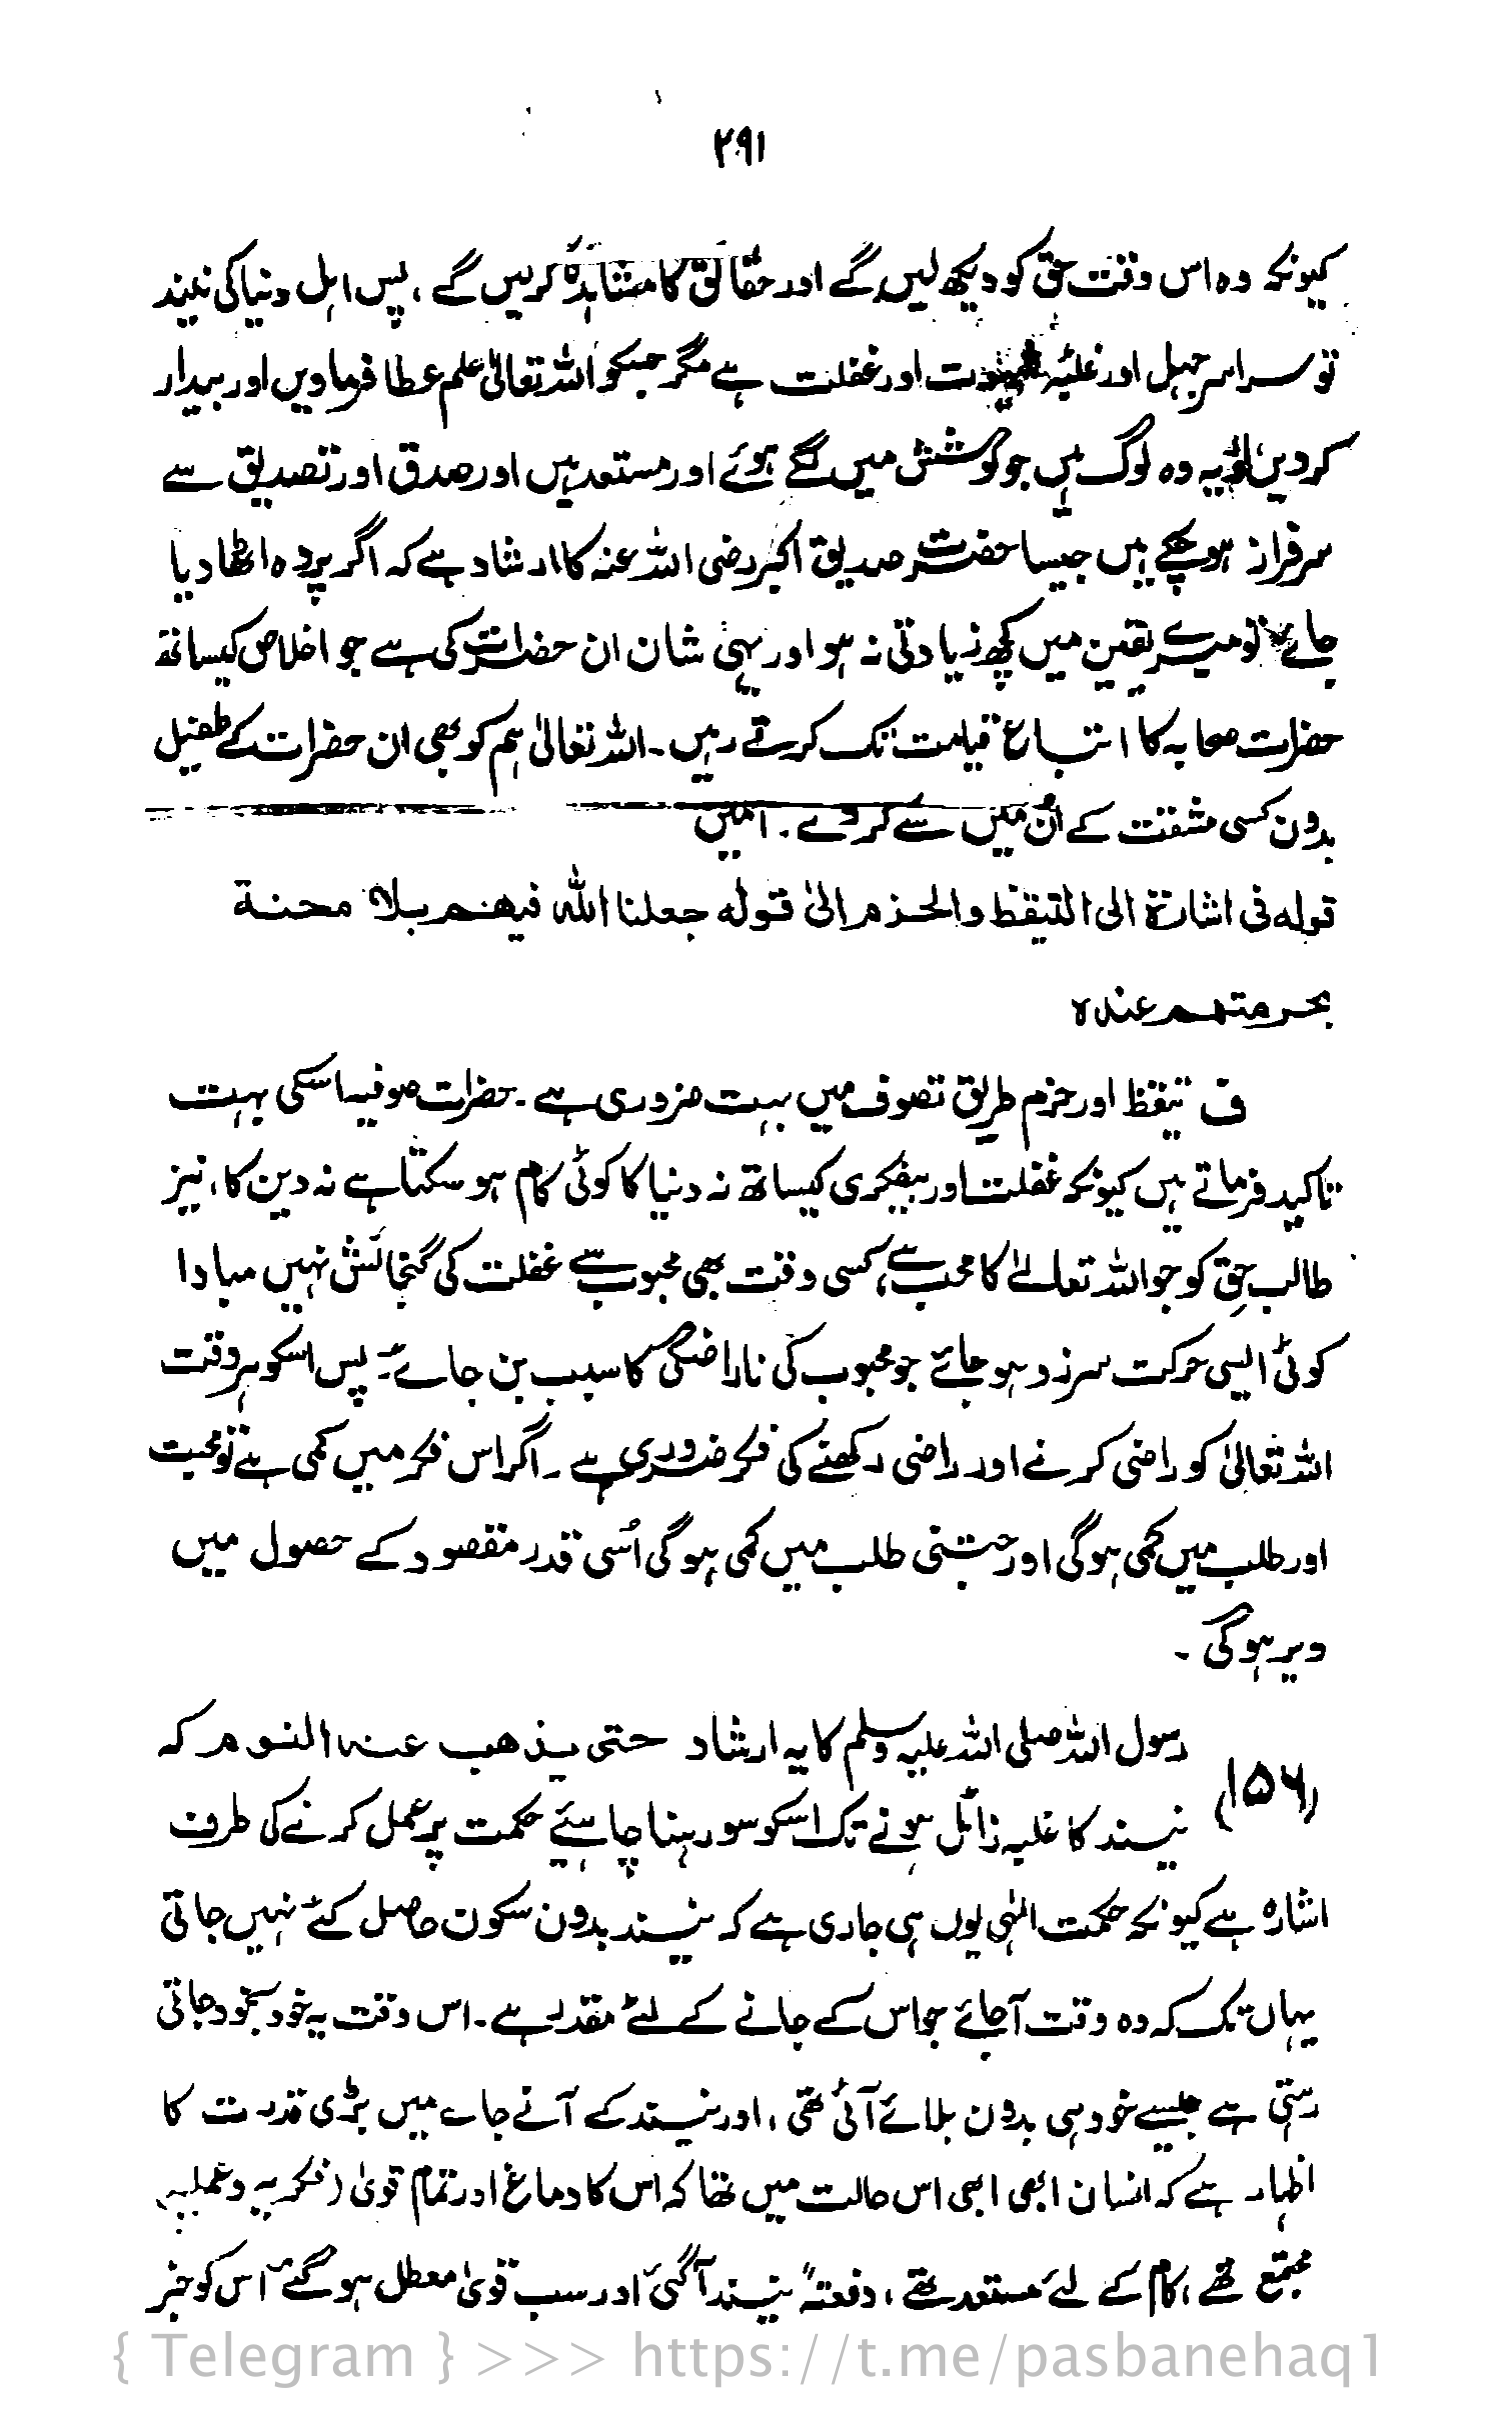 ۲۹۱
کیونکہ وہ اس وقت حق کو دیکھ لیں گے اور حقائق کا مشاہدہ کریں گے، پس اہل دنیا کی نیند
تو سراسر جہل اور غلبۂ اور غفلت ہے مگر جسکو اللہ تعالیٰ علم عطا فرماویں اور بیدار
کردیں اور یہ وہ لوگ ہیں جو کوشش میں لگے ہوئے اور مستعد ہیں اور صدق اور تصدیق سے
سرفراز ہوچکے ہیں جیسا حضرت صدیق اکبر رضی اللہ عنہ کا ارشاد ہے کہ اگر پردہ اٹھا دیا
جائے تو میرے یقین میں کچھ زیادتی نہ ہو اور یہی شان ان حضرات کی ہے جو اخلاص کیساتھ
حضرات صحابہ کا اتباع قیامت تک کرتے رہیں۔ اللہ تعالیٰ ہم کو بھی ان حضرات کے طفیل
بدون کسی مشقت کے اُن میں سے کر دے۔ آمین
قوله فی اشارة الی التیقظ والحزم الیٰ قوله جعلنا الله فیهم بلا محنة
بحرمتهم عنده
ف تیقظ اور حزم طریق تصوف میں بہت ضروری ہے۔ حضرات صوفیہ اسکی بہت
تاکید فرماتے ہیں کیونکہ غفلت اور بیفکری کیساتھ نہ دنیا کا کوئی کام ہوسکتا ہے نہ دین کا، نیز
طالب حق کو جو اللہ تعالےٰ کا محب ہے، کسی وقت بھی محبوب سے غفلت کی گنجائش نہیں مبادا
کوئی ایسی حرکت سرزد ہو جائے جو محبوب کی ناراضگی کا سبب بن جائے۔ پس اسکو ہر وقت
اللہ تعالیٰ کو راضی کرنے اور راضی رکھنے کی فکر ضروری ہے۔ اگر اس فکر میں کمی ہے تو محبت
اور طلب میں کمی ہوگی اور جتنی طلب میں کمی ہوگی اُسی قدر مقصود کے حصول میں
دیر ہوگی۔
(۱۵۶) رسول اللہ صلی اللہ علیہ وسلم کا یہ ارشاد حتی یذهب عنه النوم کہ
نیند کا غلبہ زائل ہونے تک اسکو سو رہنا چاہیئے حکمت پر عمل کرنے کی طرف
اشارہ ہے کیونکہ حکمت الٰہی یوں ہی جاری ہے کہ نیند بدون سکون حاصل کئے نہیں جاتی
یہاں تک کہ وہ وقت آجائے جو اس کے جانے کے لئے مقدر ہے۔ اس وقت یہ خود بخود جاتی
رہتی ہے جیسے خود ہی بدون بلائے آئی تھی، اور نیند کے آنے جانے میں بڑی قدرت کا
اظہار ہے کہ انسان ابھی ابھی اس حالت میں تھا کہ اس کا دماغ اور تمام قویٰ (فکریہ و عملیہ)
مجتمع تھے، کام کے لئے مستعد تھے، دفعتہً نیند آگئی اور سب قویٰ معطل ہوگئے اس کو خبر
{ Telegram } >>> https://t.me/pasbanehaq1